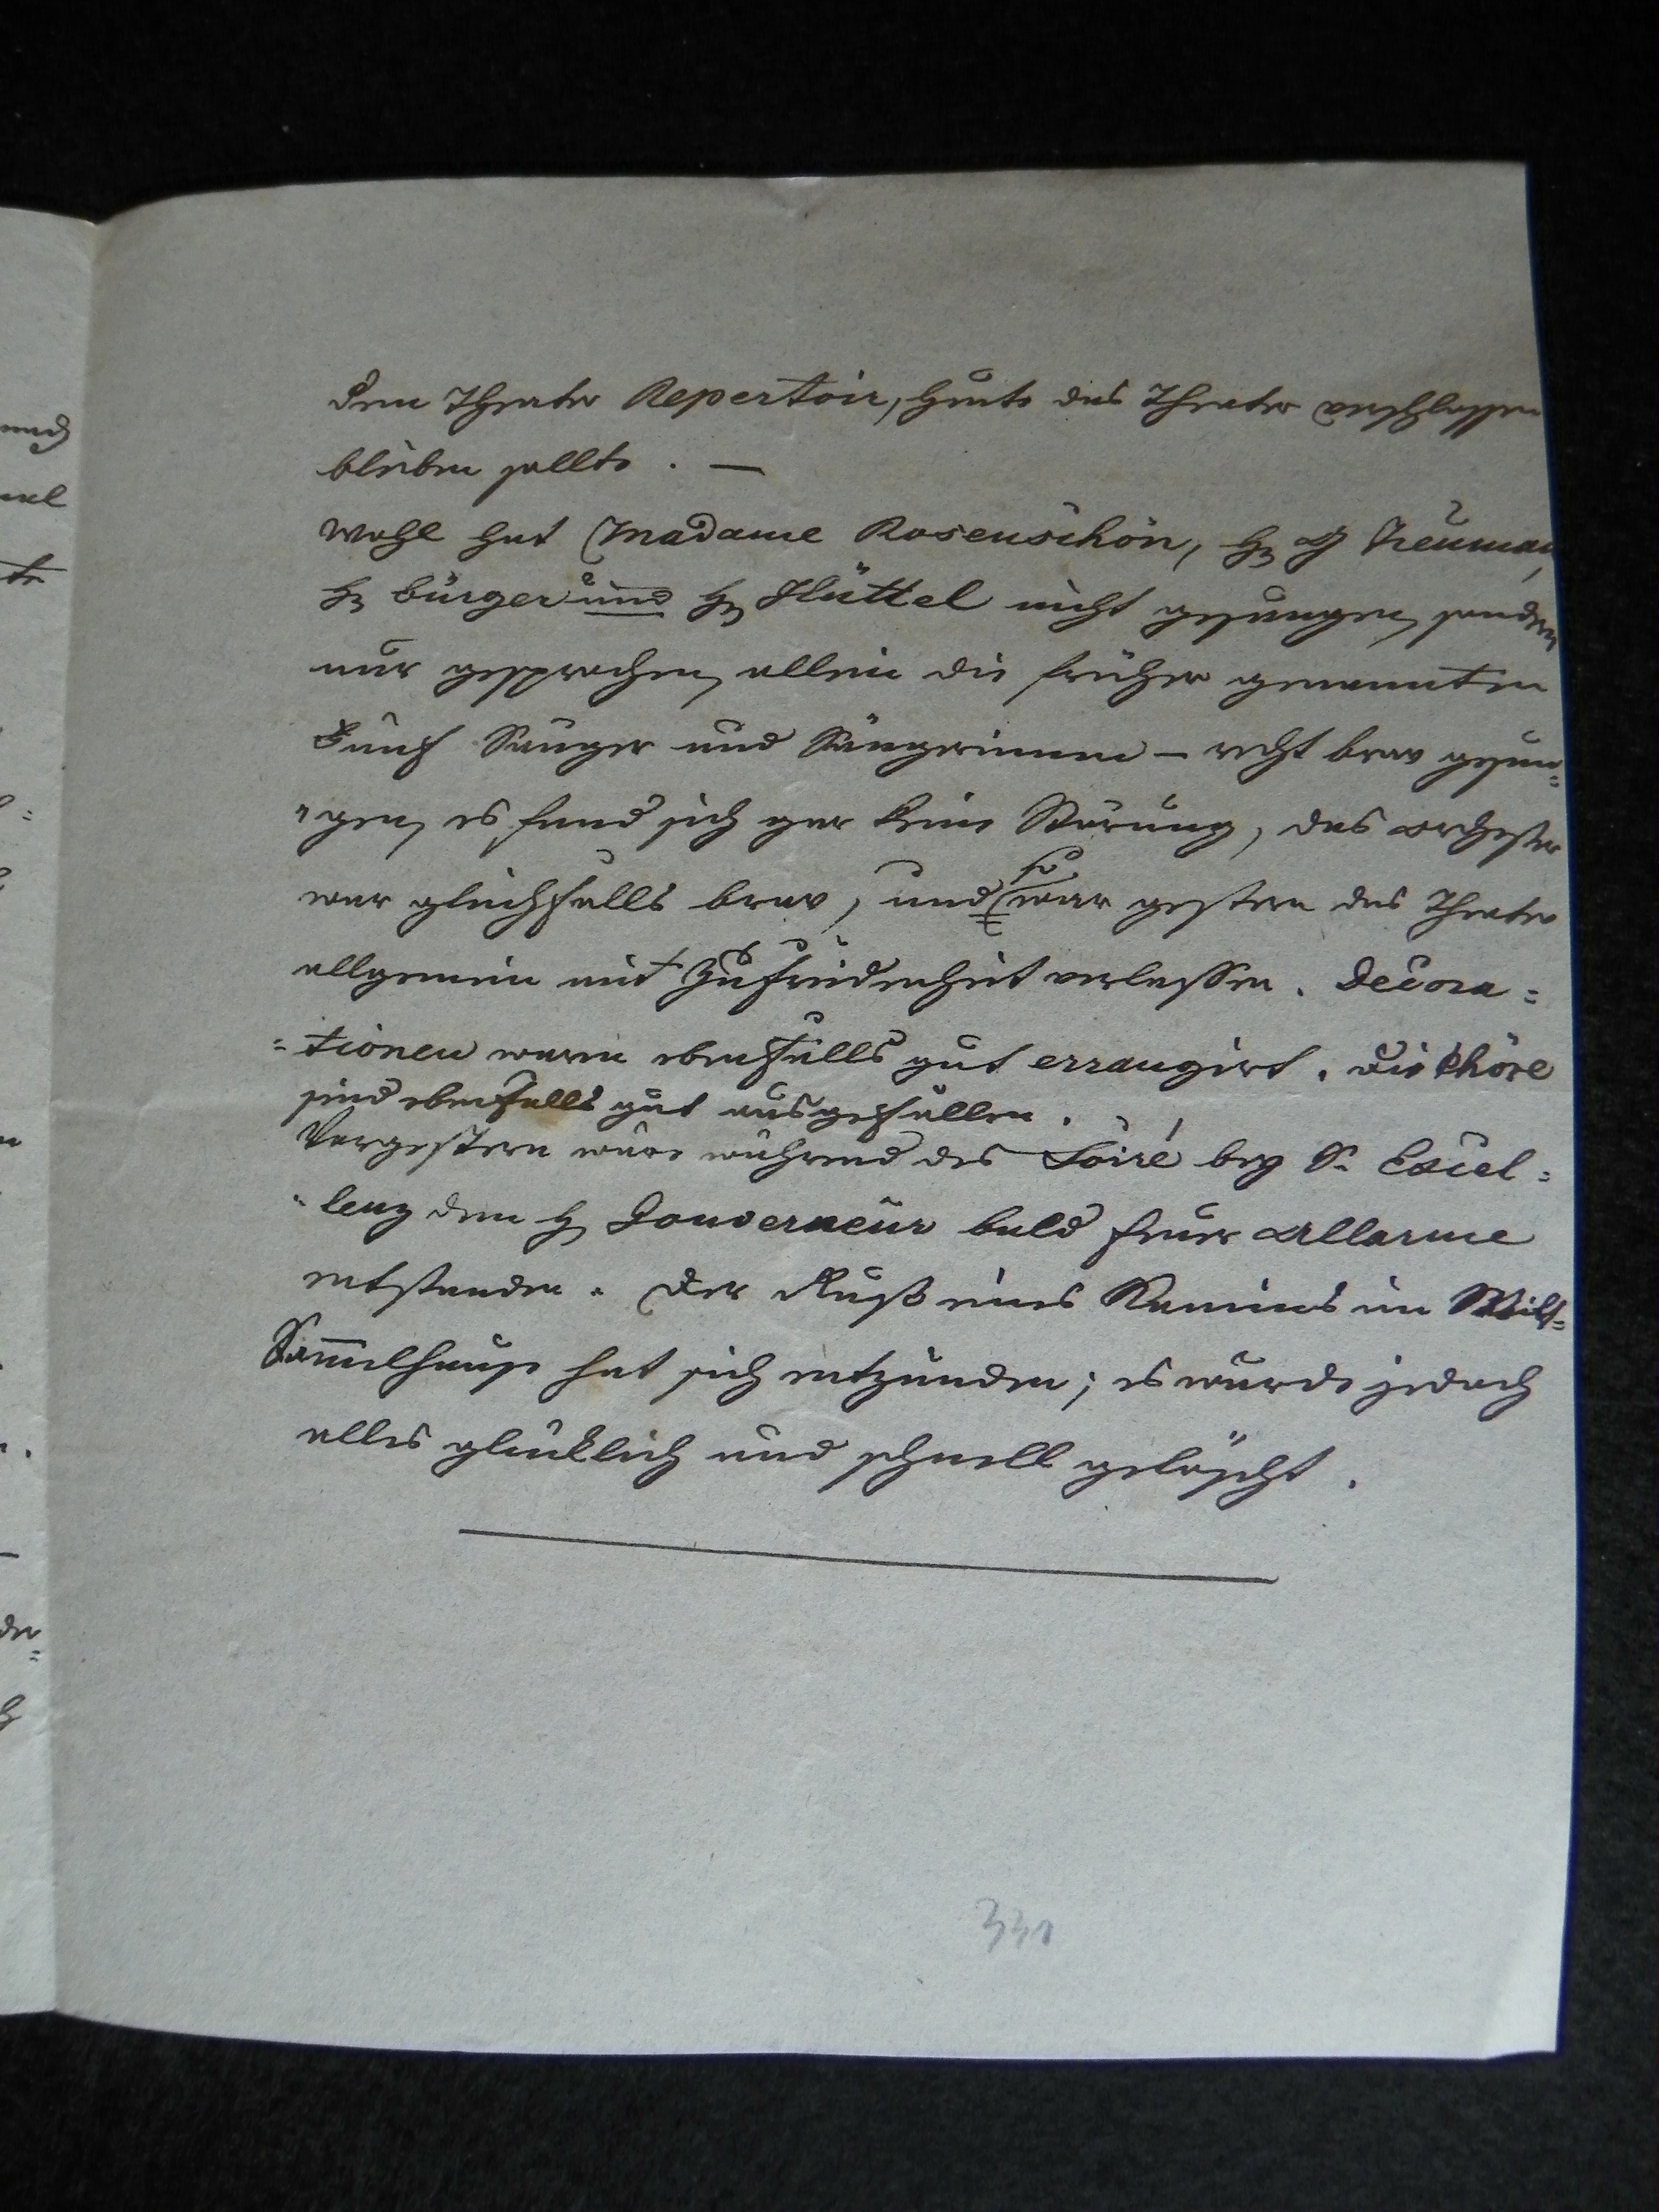 dem Theater Repertoir, heute das Theater verschlossen
bleiben sollte. —
Wohl hat Madame Rosenschön, H Neuman,
H Bürger und H Hüttel nicht gesungen, sondern
nur gesprochen, allein die früher genannten
Fünf Sänger und Sängerinnen – recht brav gesun=
"gen, es fand sich gar keine Störung, das Orchester
war gleichfalls brav, und so war gestern das Theater
allgemein mit Zufriedenheit verlassen. Decora=
=tionen waren ebenfalls gut errangirt. Die Chöre
sind ebenfalls gut ausgefallen.
Vorgestern wäre während des Soiré bey S. Excel=
"lenz dem H Gouverneur bald Feuer Allarme
entstanden. Der Ruß eines Kamins im
Sam̄elhause hat sich entzünden; es wurde jedoch
alles glücklich und schnell gelöscht.
331